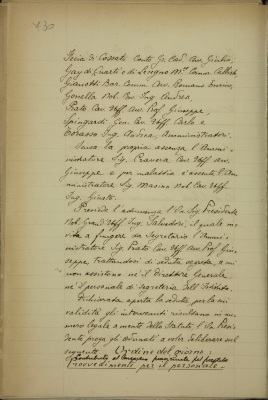 430
di Cossato Conte Gr. Cav. Avv. Giulio,
Gay di Quarti e di Lesegno M.se Comm.
Gianotti Bar. Comm. Avv. Romano
Gonella Nob. Cav. Ing. Andrea,
Prato Cav. Uff. Avv. Prof. Giuseppe,
Spingardi Gen. Cav. Uff. Carlo e
Ing. Andrea, Amministratori.
Scusa la propria assenza l'Ammi-
nistratore Sig. Cav. Uff. Avv.
Giuseppe e per malattia è assente l'Am-
ministratore Sig. Masino Nob. Cav. Uff.
Ing. Giusto.
Presiede l'adunanza l'Ill. Sig. Presidente
Nob. Grand'Uff. Ing. Salvadori, il quale in-
vita a fungere da Segretario l'Ammi-
nistratore Sig. Prato Cav. Uff. Avv. Prof. Giu-
seppe, trattandosi di seduta segreta, a cui
non assistono nè il Direttore Generale
nè il personale di Segreteria dell'Istituto.
Dichiarata aperta la seduta, per la cui
validità gli intervenuti risultano in nu-
mero legale a mente dello Statuto, il Sig. Presi-
dente prega gli adunati a voler deliberare sul
seguente Ordine del giorno:
Provvedimenti per il personale.